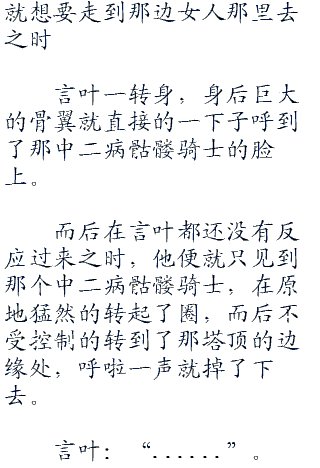 就想要走到那边女人那里去
之时
言叶一转身，身后巨大
的骨翼就直接的一下子呼到
了那中二病骷髅骑士的脸
上。
而后在言叶都还没有反
应过来之时，他便就只见到
那个中二病骷髅骑士，在原
地猛然的转起了圈，而后不
受控制的转到了那塔顶的边
缘处，呼啦一声就掉了下
去。
言叶：“......”。